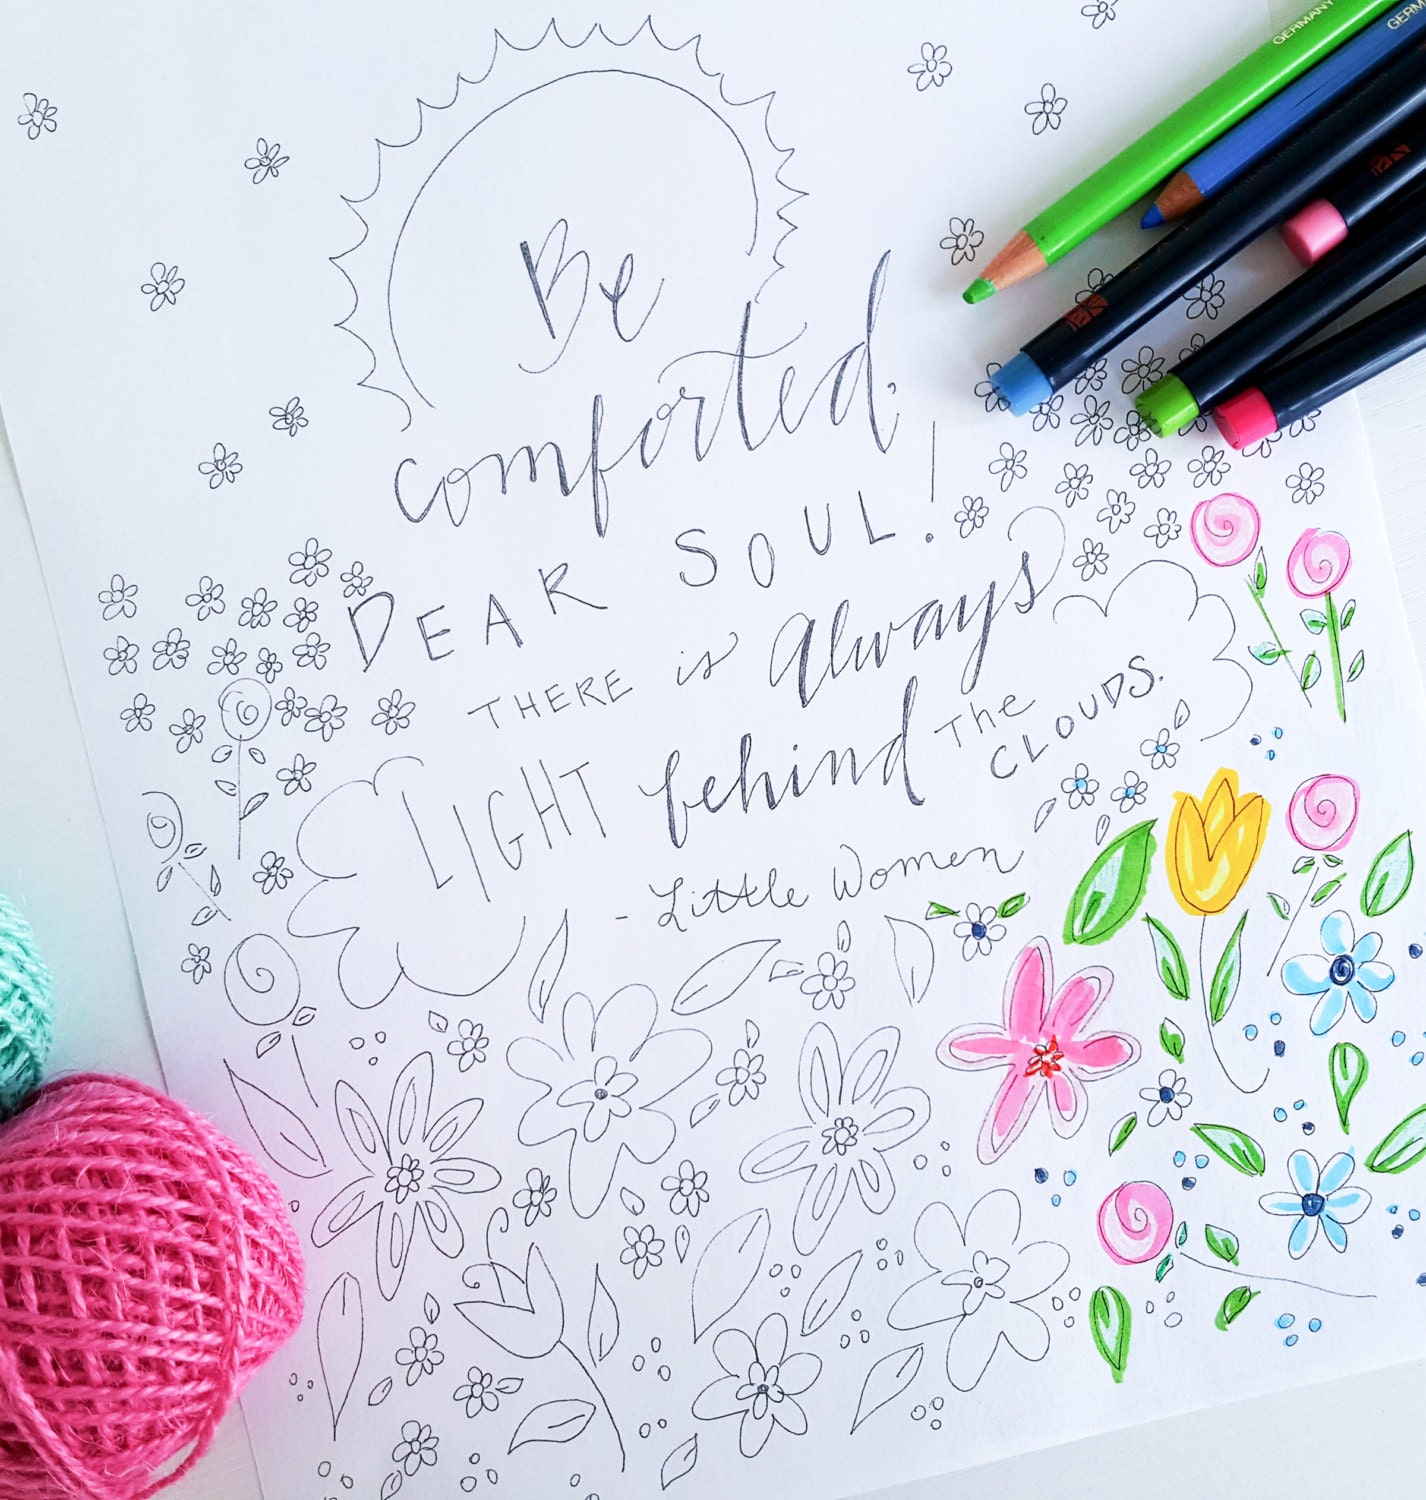 Be
comforted,
DEAR SOUL!
THERE is Always
LIGHT behind the
CLOUDS.
- Little Women
GERMANY
GERMANY